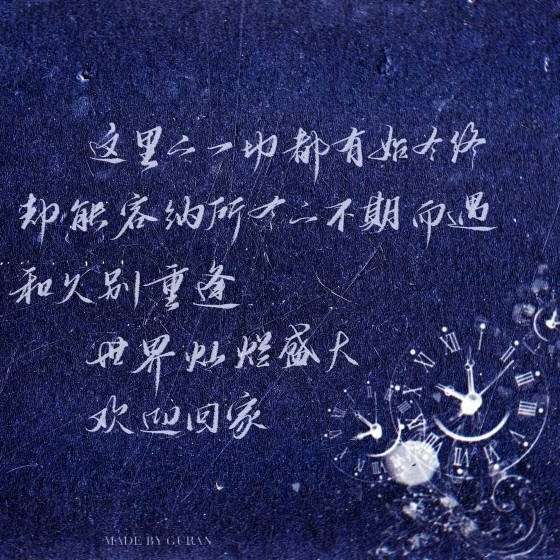 这里的一切都有始有终
却能容纳所有的不期而遇
和久别重逢
世界灿烂盛大
欢迎回家
MADE BY GURAN